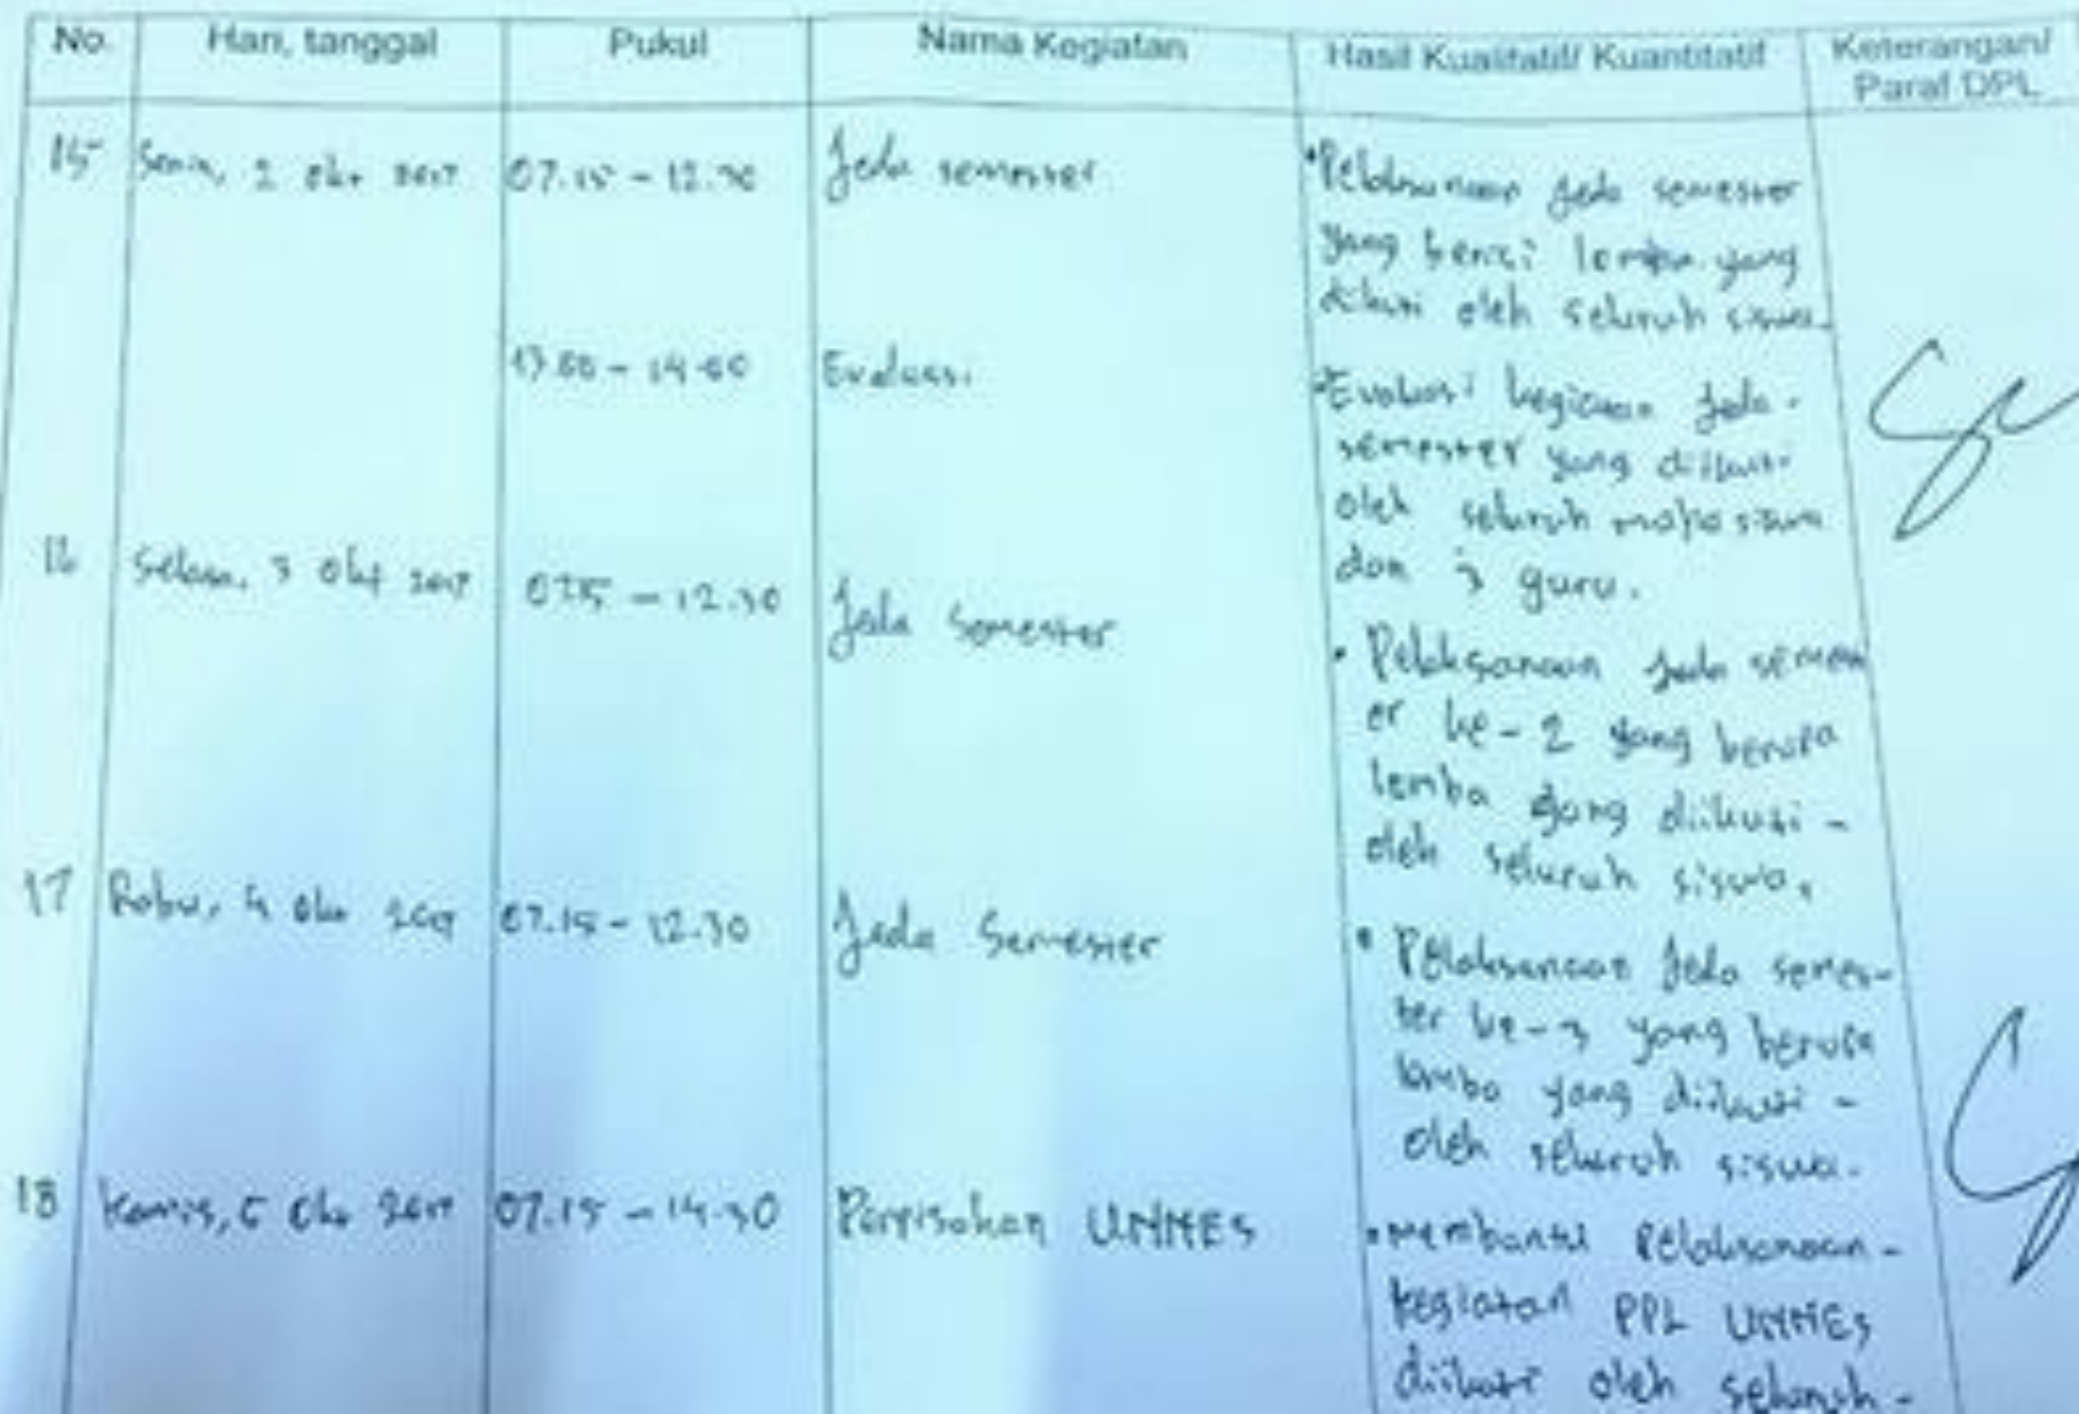 No. Hari, tanggal Pukul Nama Kegiatan Hasil Kualitatif/ Kuantitatif Keterangan/
Paraf DPL
15 Senin, 2 Okt 2017 07.15 - 12.30 Jeda semester
•Pelaksanaan jeda semester
yang berisi lomba yang
diikuti oleh seluruh siswa.
13.00 - 14.00 Evaluasi
•Evaluasi kegiatan jeda -
semester yang diikuti
oleh seluruh mahasiswa
dan 3 guru.
16 Selasa, 3 Okt 2017 07.15 - 12.30 Jeda Semester
• Pelaksanaan jeda semest
er ke-2 yang berupa
lomba yang diikuti -
oleh seluruh siswa.
17 Rabu, 4 Okt 2017 07.15 - 12.30 Jeda Semester
• Pelaksanaan Jeda semes-
ter ke-3 yang berupa
lomba yang diikuti -
oleh seluruh siswa.
18 Kamis, 5 Okt 2017 07.15 - 14.30 Perpisahan UNNES
•Membantu Pelaksanaan -
kegiatan PPL UNNES
diikuti oleh seluruh -